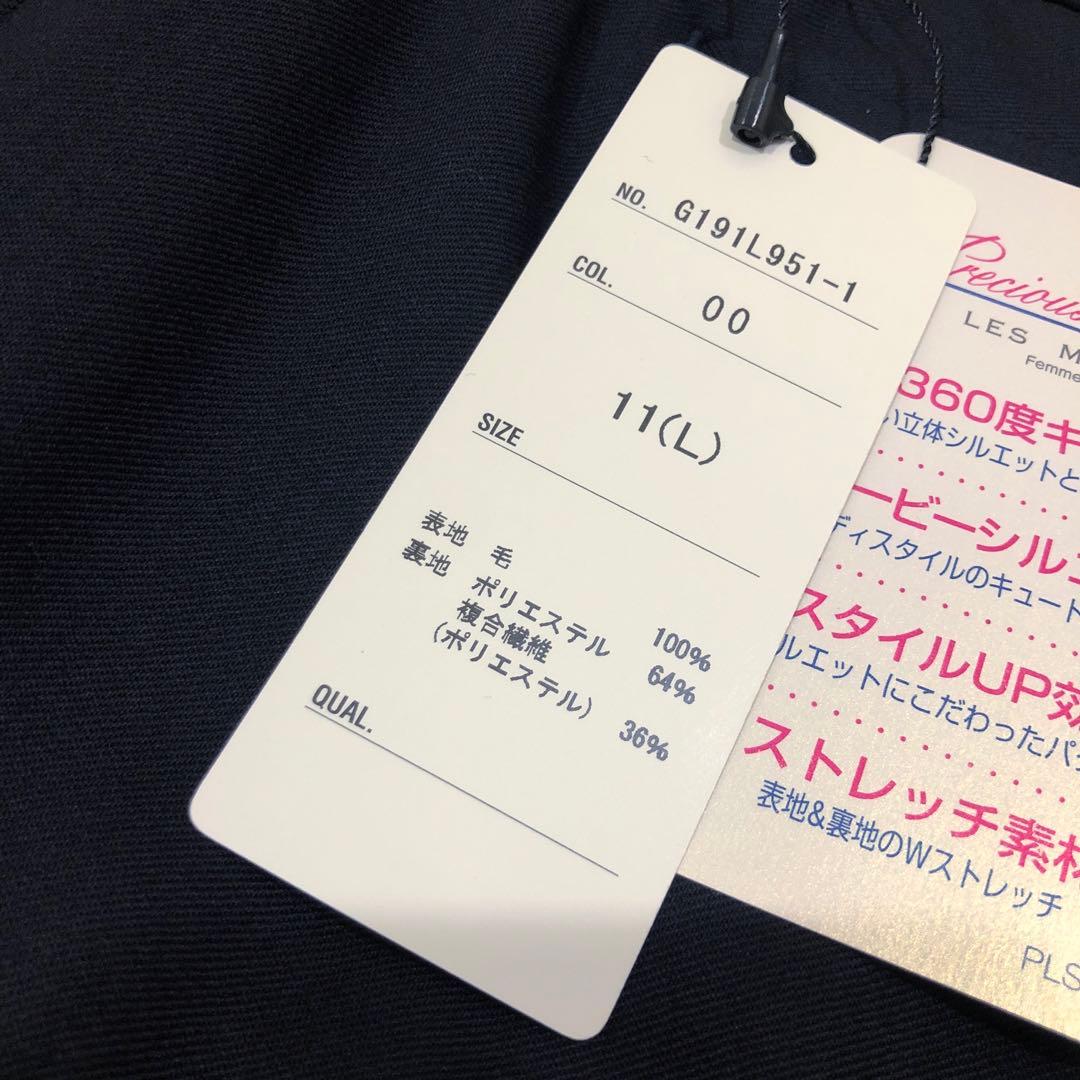 NO. G191L951-1
COL. 00
SIZE 11(L)
表地 毛 100%
裏地 ポリエステル 64%
複合繊維
(ポリエステル) 36%
QUAL.
Precious
LES M
Femme
360度キ
い立体シルエットと
ービーシルエ
ディスタイルのキュート
スタイルUP効
ルエットにこだわったパタ
ストレッチ素材
表地&裏地のWストレッチ
PLS